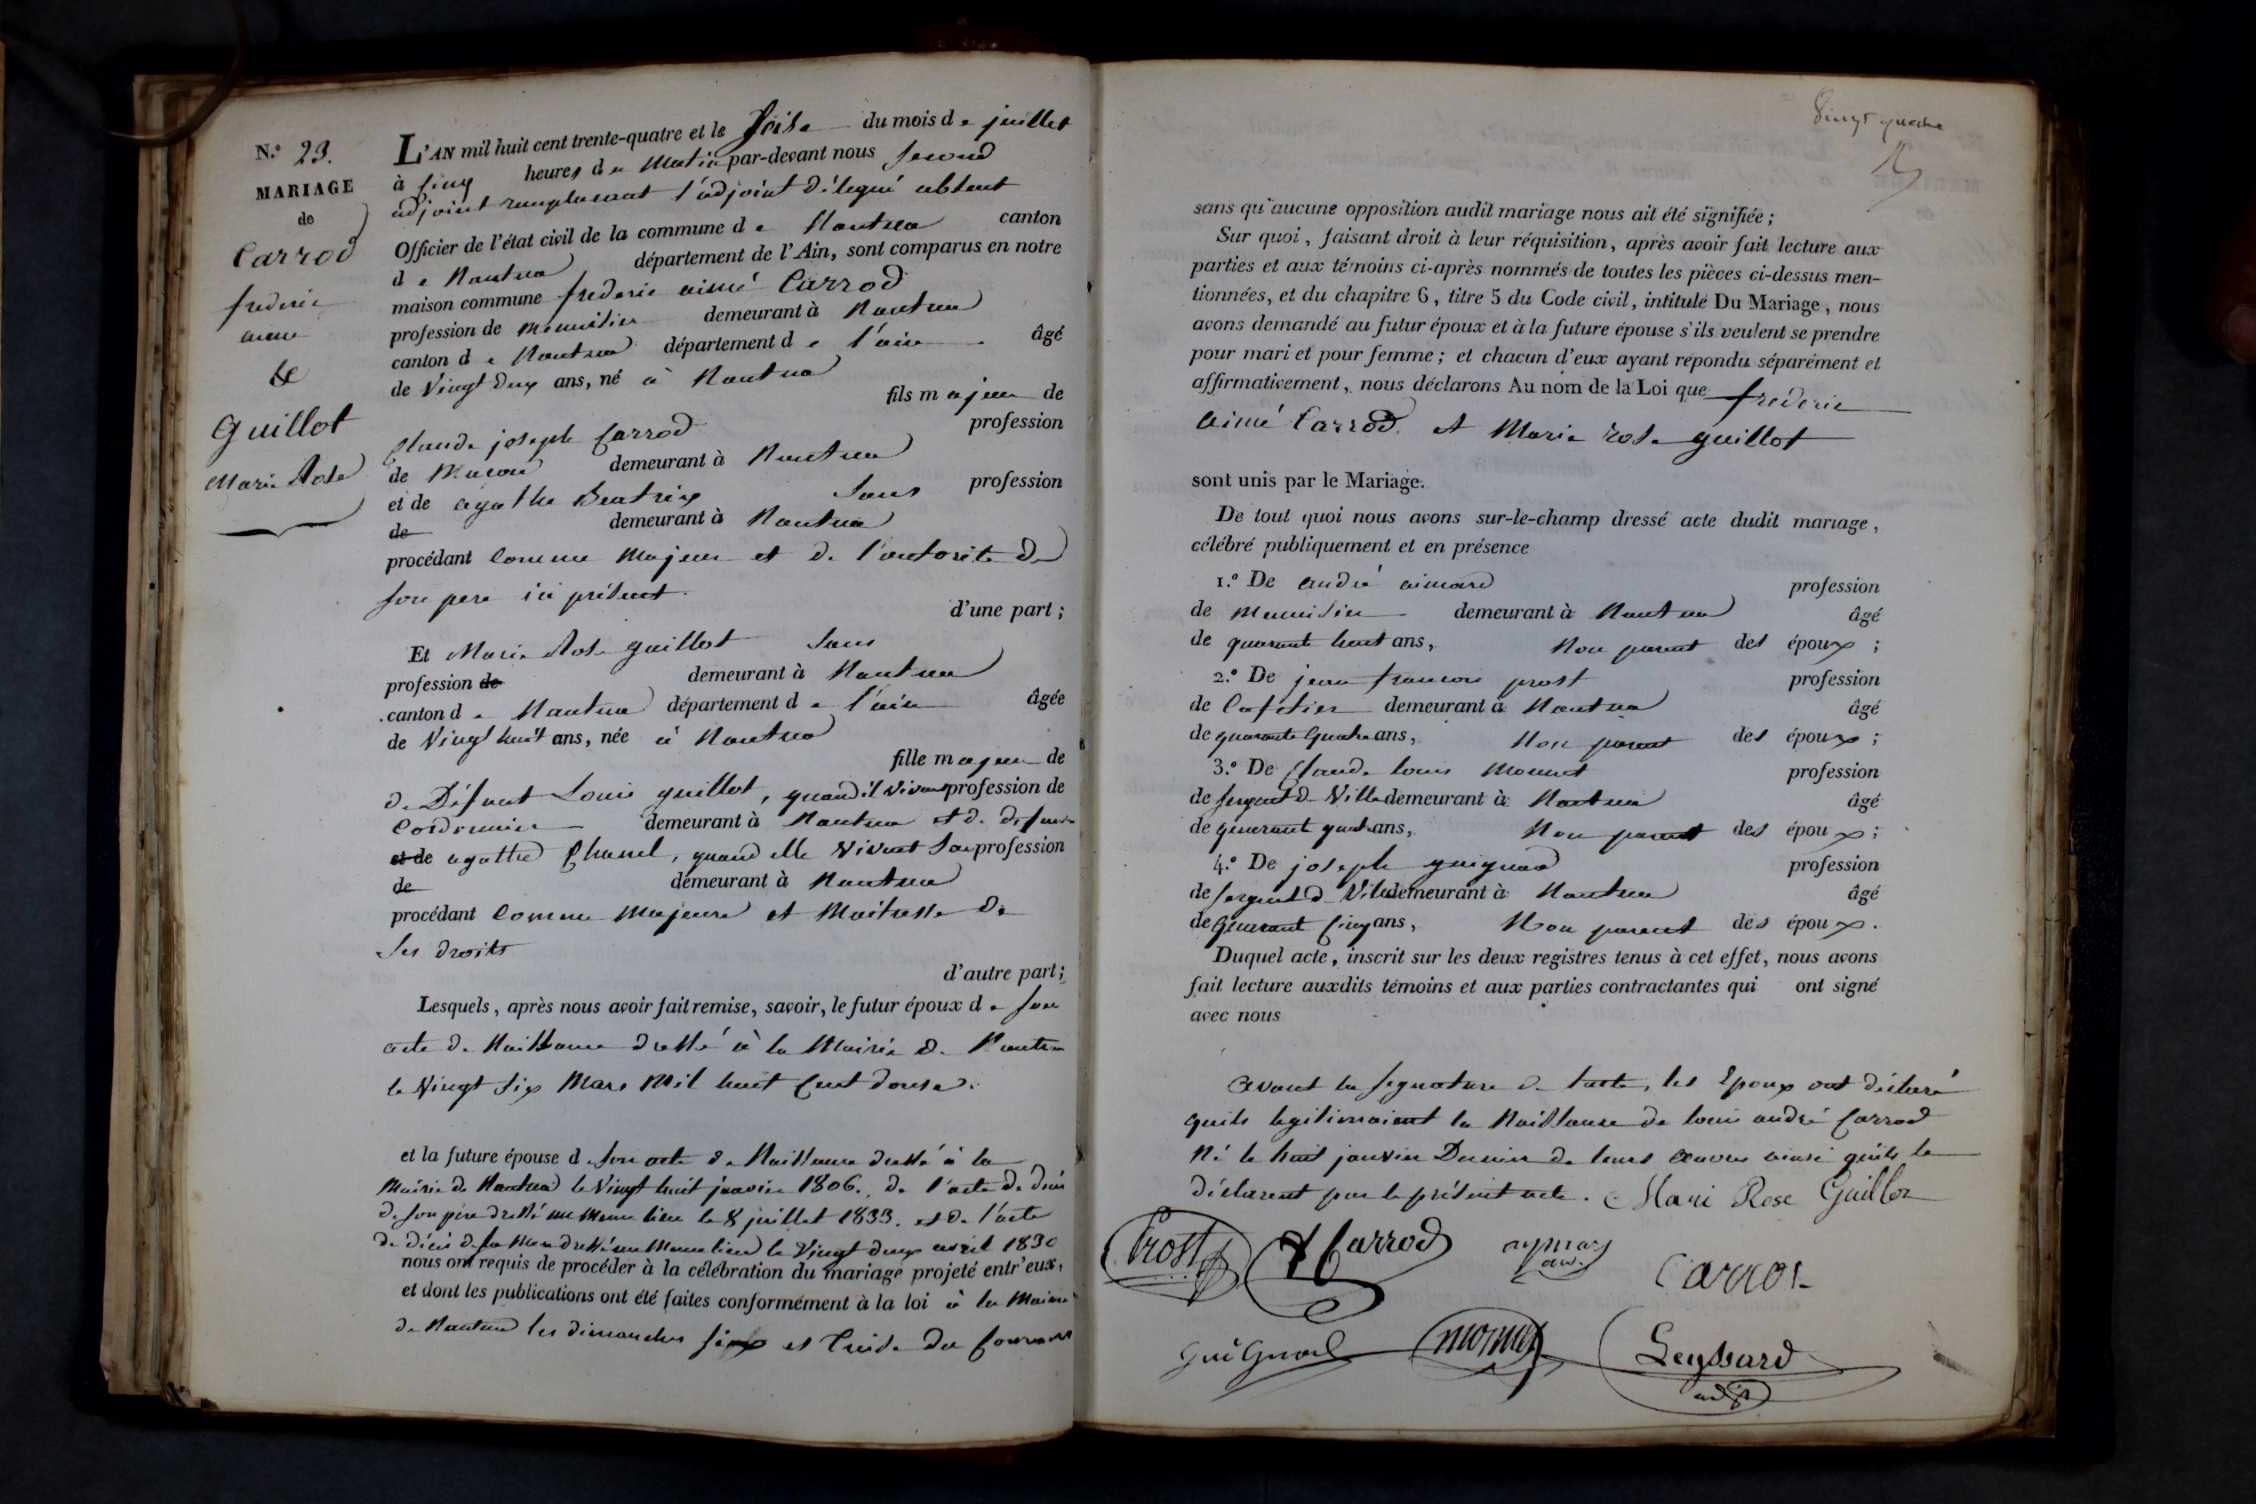 N.º 23.
MARIAGE
de
Carrod
frederic
aimé
&
Guillot
Marie Rose
L'AN mil huit cent trente-quatre et le seize du mois de juillet
à cinq heures du Matin par-devant nous second
adjoint remplacant l'adjoint délegué absent
Officier de l'état civil de la commune de Nantua canton
de Nantua département de l'Ain, sont comparus en notre
maison commune frederic aimé Carrod
profession de Menuisier demeurant à Nantua
canton de Nantua département de l'ain âgé
de Vingt deux ans, né à Nantua
fils majeur de
Claude joseph Carrod profession
de Macon demeurant à Nantua
et de agathe Beatrix Sans profession
de demeurant à Nantua
procédant Comme Majeur et de l'autorité de
son pere ici présent.
d'une part ;
Et Marie Rose guillot Sans
profession de demeurant à Nantua
canton de Nantua département de l'ain âgée
de Vingt huit ans, née à Nantua
fille majeure de
de Défunt Louis guillot, quand il Vivait profession de
Cordonnier demeurant à Nantua et de defunte
et de agathe Chanel, quand elle Vivait San profession
de demeurant à Nantua
procédant Comme Majeure et Maitresse de
Ses droits
d'autre part;
Lesquels, après nous avoir fait remise, savoir, le futur époux de son
acte de Naissance dressé à la Mairie de Nantua
le Vingt six Mars Mil huit Cent douse.
et la future épouse de son acte de Naissance dressé à la
Mairie de Nantua le Vingt huit janvier 1806., de l'acte de décès
de son père dressé au Meme lieu le 8 juillet 1833. et de l'acte
de décès de sa Mere dressé au Meme lieu le Vingt deux avril 1830
nous ont requis de procéder à la célébration du mariage projeté entr'eux,
et dont les publications ont été faites conformément à la loi à la Mairie
de Nantua les dimanches six et treise du Courant
Vingt quatre
sans qu'aucune opposition audit mariage nous ait été signifiée ;
Sur quoi, faisant droit à leur réquisition, après avoir fait lecture aux
parties et aux témoins ci-après nommés de toutes les pièces ci-dessus men-
tionnées, et du chapitre 6, titre 5 du Code civil, intitulé Du Mariage, nous
avons demandé au futur époux et à la future épouse s'ils veulent se prendre
pour mari et pour femme ; et chacun d'eux ayant répondu séparément et
affirmativement, nous déclarons Au nom de la Loi que frederic
aimé Carrod. et Marie rose guillot
sont unis par le Mariage.
De tout quoi nous avons sur-le-champ dressé acte dudit mariage,
célébré publiquement et en présence
1.º De andré aimard profession
de Menuisier demeurant à Nantua âgé
de quarante huit ans, Non parent des époux ;
2.º De jean francois prost profession
de Cafetier demeurant à Nantua âgé
de quarante Quatre ans, Non parent des époux ;
3.º De Claude louis Monnet profession
de sergent de Ville demeurant à Nantua âgé
de quarante quatre ans, Non parent des époux ;
4.º De joseph guignard profession
de sergent de Ville demeurant à Nantua âgé
de Quarante Cinq ans, Non parent des époux.
Duquel acte, inscrit sur les deux registres tenus à cet effet, nous avons
fait lecture auxdits témoins et aux parties contractantes qui ont signé
avec nous
avant la signature de l'acte, les Epoux ont déclaré
quils legitimaient la Naissance de louis andré Carrod
Né le huit janvier Dernier de leurs œuvres ainsi quils le
déclarent par le présent acte. Mari Rose Guillot
Prost Carrod aymar Carrod
GuiGnard monnet Leyssard
adjt